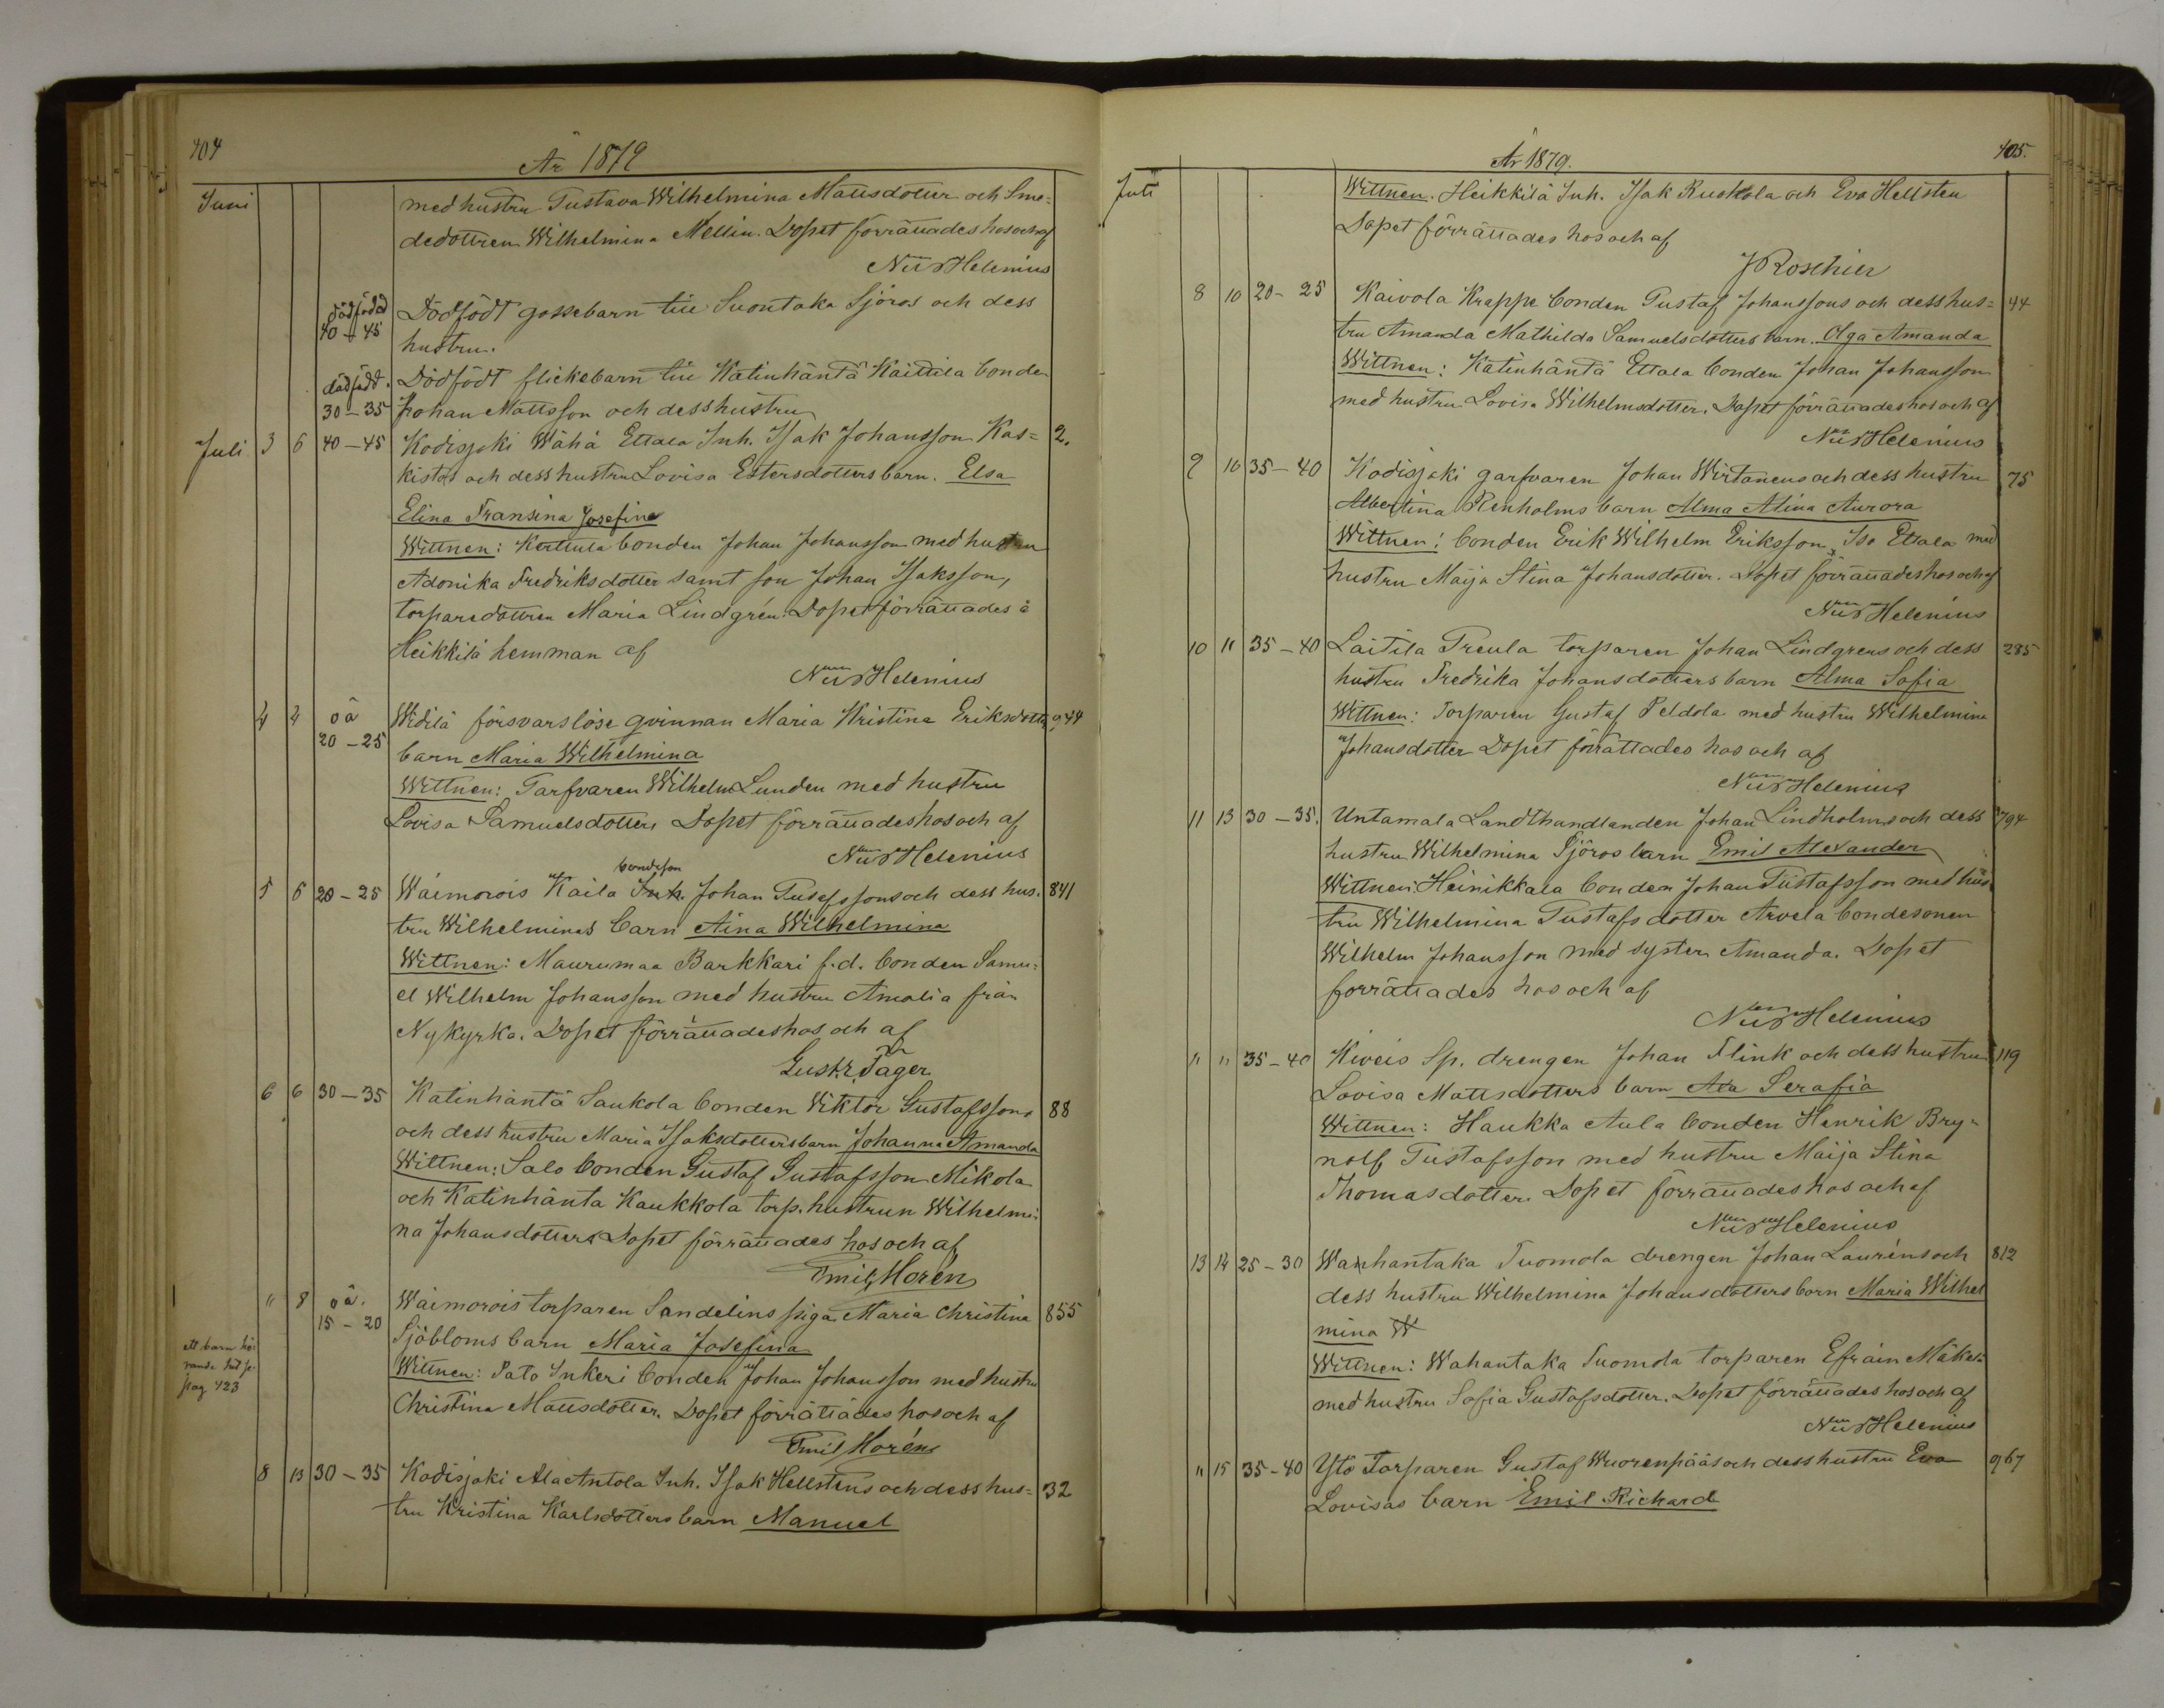 404
År 1879
Juni
med hustru Gustava Wilhelmina Mattsdotter och Sme=
dedottren Wilhelmina Mellin. Dopet förrättades hos och af
Nils Helenius
dödfödd
40 – 45 Dödfödt gossebarn till Suontaka Sjöros och dess
hustru.
dödfödt. Dödfödt flickebarn till Katinhäntä Kaittila bonden
30 – 35 Johan Mattsson och dess hustru
Juli 3 6 40 – 45 Kodisjoki Wähä Ettala Inh. Isak Johansson Kas= 2.
kistos och dess hustru Lovisa Estersdotters barn. Elsa
Elina Fransina Josefina
Wittnen: Kuttula bonden Johan Johansson med hustru
Adonika Fredriksdotter samt son Johan Isaksson,
torparedottren Maria Lindgrén. Dopet förrättades å
Heikkilä hemman af
Nils Helenius
4 4 oä
20 – 25 Widilä försvarslöse qvinnan Maria Kristina Eriksdotters 944
barn Maria Wilhelmina
Wittnen: Garfvaren Wilhelm Lunden med hustru
Lovisa Samuelsdotter. Dopet förrättades hos och af
Nils Helenius
bondeson
5 6 20 – 25 Waimorois Kaila Inh. Johan Gustafssons och dess hus. 841
tru Wilhelminas barn Aina Wilhelmina
Wittnen: Maurumaa Barkkari f.d. bonden Samu=
el Wilhelm Johansson med hustru Amalia från
Nykyrka. Dopet förrättades hos och af
Gust. Fr. Fager
6 6 30 – 35 Katinhäntä Saukola bonden Viktor Gustafssons 88
och dess hustru Maria Isaksdotters barn Johanna Amanda
Wittnen: Salo bonden Gustaf Gustafsson Mikola
och Katinhänta Kaukkola torp. hustrun Wilhelmi=
na Johansdotter. Dopet förrättades hos och af
Emil Horén
" 8 oä.
15 – 20 Waimorois torparen Sandelins piga Maria Christina 855
Sjöbloms barn Maria Josefina
ett barn hö=
rande hit p.
pag 423
Wittnen: Pato Inkeri bonden Johan Johansson med hustru
Christina Mattsdotter. Dopet förrättades hos och af
Emil Horén
8 13 30 – 35 Kodisjoki Ala Antola Inh. Isak Hellstens och dess hus= 32
tru Kristina Karlsdotters barn Manuel
405.
År 1879.
Juli
Wittnen. Heikkilä Inh. Isak Ruokola och Eva Hellsten
Dopet förrättades hos och af
J Roschier
8 10 20 – 25 Kaivola Krappe bonden Gustaf Johanssons och dess hus= 44
tru Amanda Mathilda Samuelsdotters barn. Olga Amanda
Wittnen: Katinhäntä Ettala bonden Johan Johansson
med hustru Lovisa Wilhelmsdotter. Dopet förrättades hos och af
Nils Helenius
9 10 35 – 40 Kodisjoki garfvaren Johan Wirtanens och dess hustru 75
Albertina Renholms barn Alma Alina Aurora
Wittnen: bonden Erik Wilhelm Eriksson Iso Ettala med
hustru Maija Stina Johansdotter. Dopet förrättades hos och af
Nils Helenius
10 11 35 – 40 Laitila Preula torparen Johan Lindgrens och dess 285
hustru Fredrika Johansdotters barn Alma Sofia
Wittnen: Torparen Gustaf Peldola med hustru Wilhelmina
Johansdotter Dopet förrättades hos och af
Nils Helenius
11 13 30 – 35. Untamala Landthandlanden Johan Lindholms och dess 794
hustru Wilhelmina Sjöros barn Emil Alexander
Wittnen: Heinikkala bonden Johan Gustafsson med hus=
tru Wilhelmina Gustafsdotter Arvela bondesonen
Wilhelm Johansson med syster Amanda. Dopet
förrättades hos och af
Nils Helenius
" " 35 – 40 Kiveis Sp. drengen Johan Flink och dess hustru 119
Lovisa Mattsdotters barn Ada Serafia
Wittnen: Haukka Aula bonden Henrik Bry=
nolf Gustafsson med hustru Maija Stina
Thomasdotter. Dopet förrättades hos och af
Nils Helenius
13 14 25 – 30 Wahantaka Tuomola drengen Johan Lauréns och 812
dess hustru Wilhelmina Johansdotters barn Maria Wilhel
mina W
Wittnen: Wahantaka Tuomola torparen Efraim Mäkelä
med hustru Sofia Gustafsdotter. Dopet förrättades hos och af
Nils Helenius
" 15 35 – 40 Ytö Torparen Gustaf Wuorenpääs och dess hustru Eva 967
Lovisas barn Emil Richard